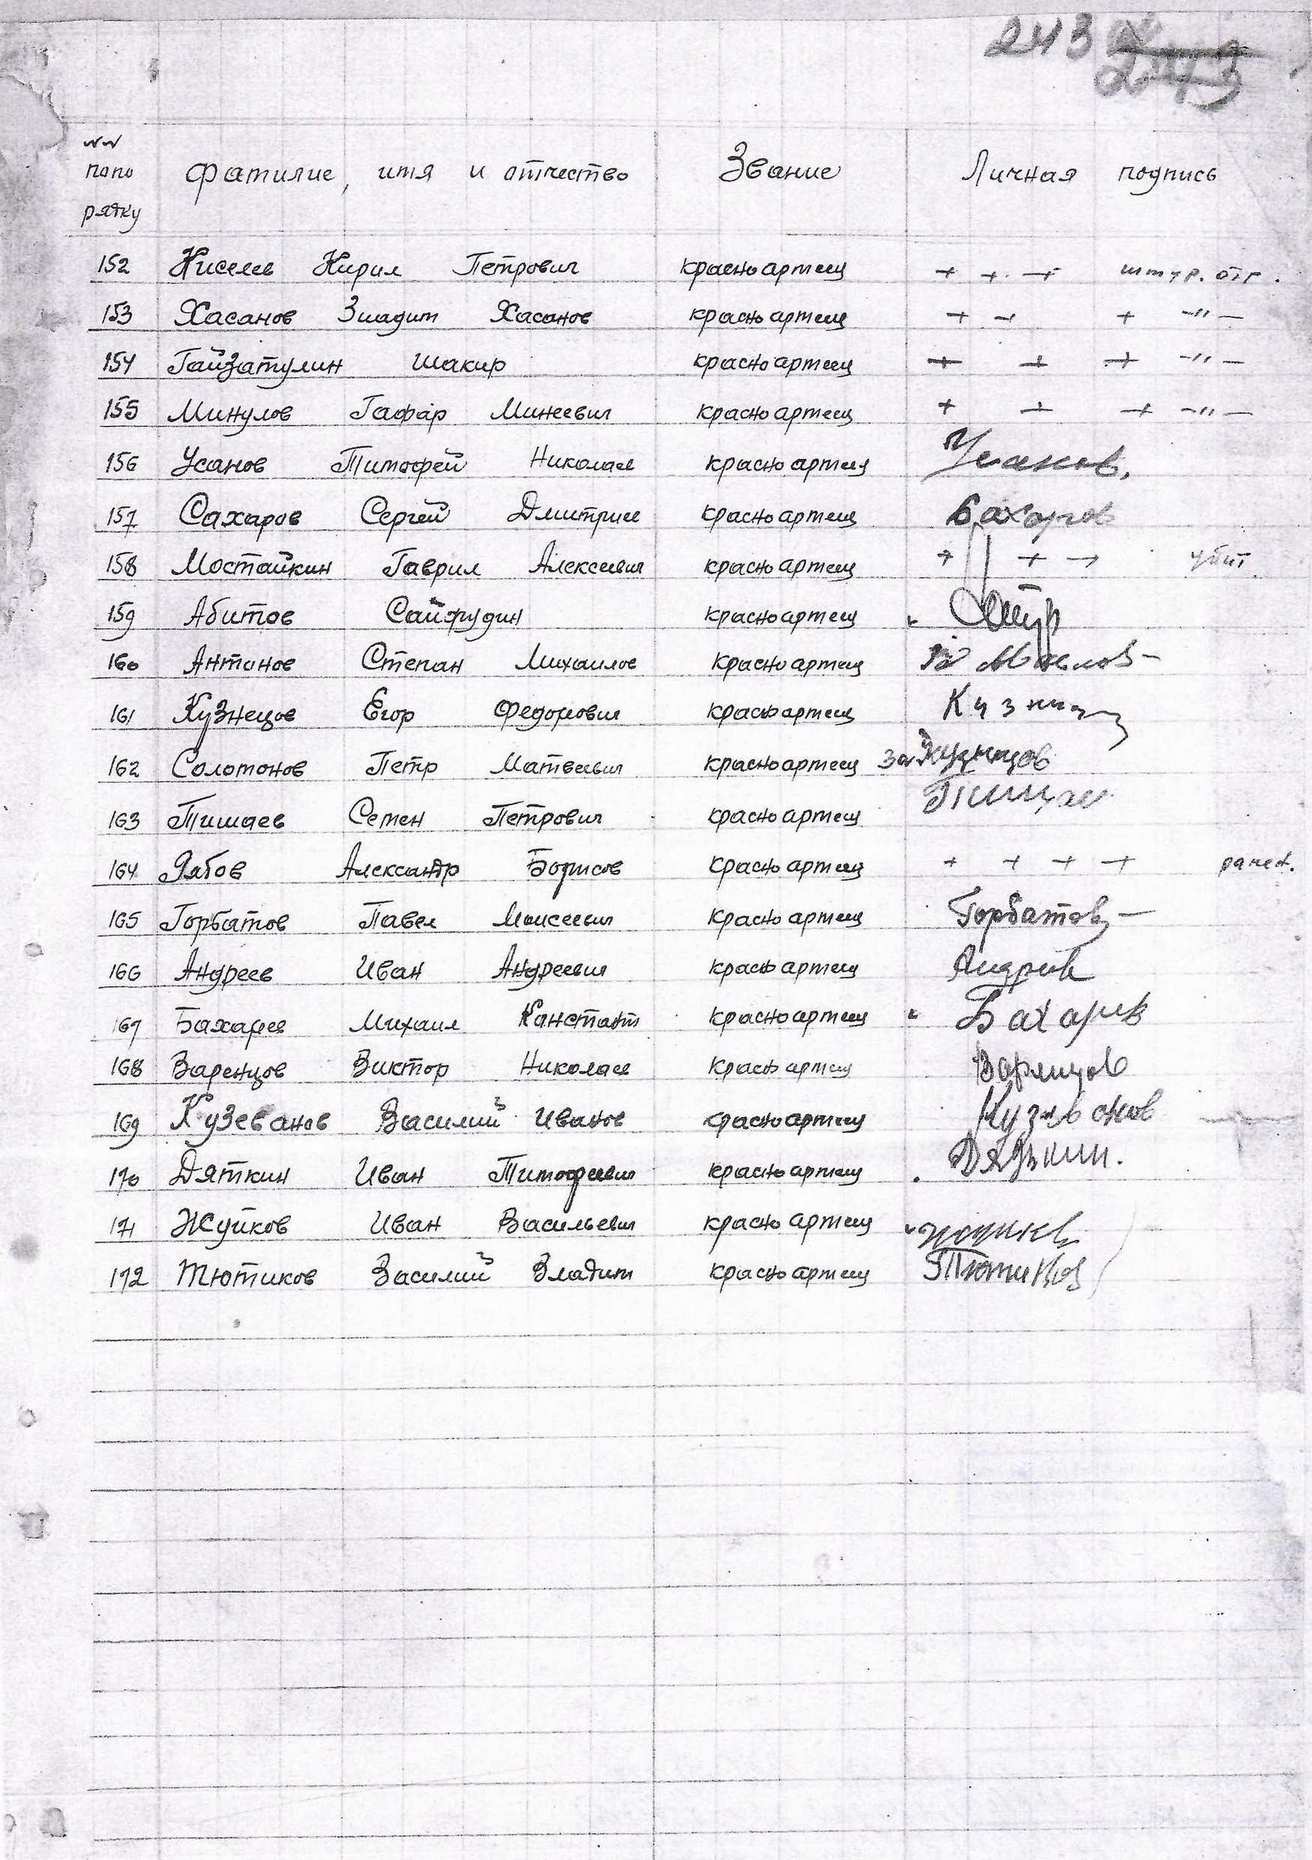 243
243
№№ попо рядку
фамилие, имя и отчество Звание Личная подпись
152 Киселев Кирил Петрович красноармеец + + + штур. отр.
153 Хасанов Зиадит Хасанов красноармеец + + + -"-
154 Гайзатулин Шакир красноармеец + + + -"-
155 Минулов Гафар Минеевич красноармеец + + + -"-
156 Усанов Тимофей Николаев красноармеец Усанов.
157 Сахаров Сергей Дмитрие красноармеец Сахаров
158 Мостайкин Гаврил Алексеевич красноармеец + + + убит
159 Абитов Сайфудин красноармеец
160 Антонов Степан Михаилов красноармеец
161 Кузнецов Егор Федорович красноармеец Кузнец
162 Соломонов Петр Матвеевич красноармеец за Кузнецов
163 Тишаев Семен Петрович красноармеец
164 Рябов Александр Борисов красноармеец + + + + ранен.
165 Горбатов Павел Моисеевич красноармеец Горбатов
166 Андреев Иван Андреевич красноармеец Андреев
167 Бахарев Михаил Канстант красноармеец Бахарев
168 Варенцов Виктор Николаев красноармеец Варенцов
169 Кузеванов Василий Иванов красноармеец Кузеванов
170 Дяткин Иван Тимофеевич красноармеец Дядькин.
171 Жуйков Иван Васильевич красноармеец
172 Тютиков Василий Владим красноармеец Тютиков